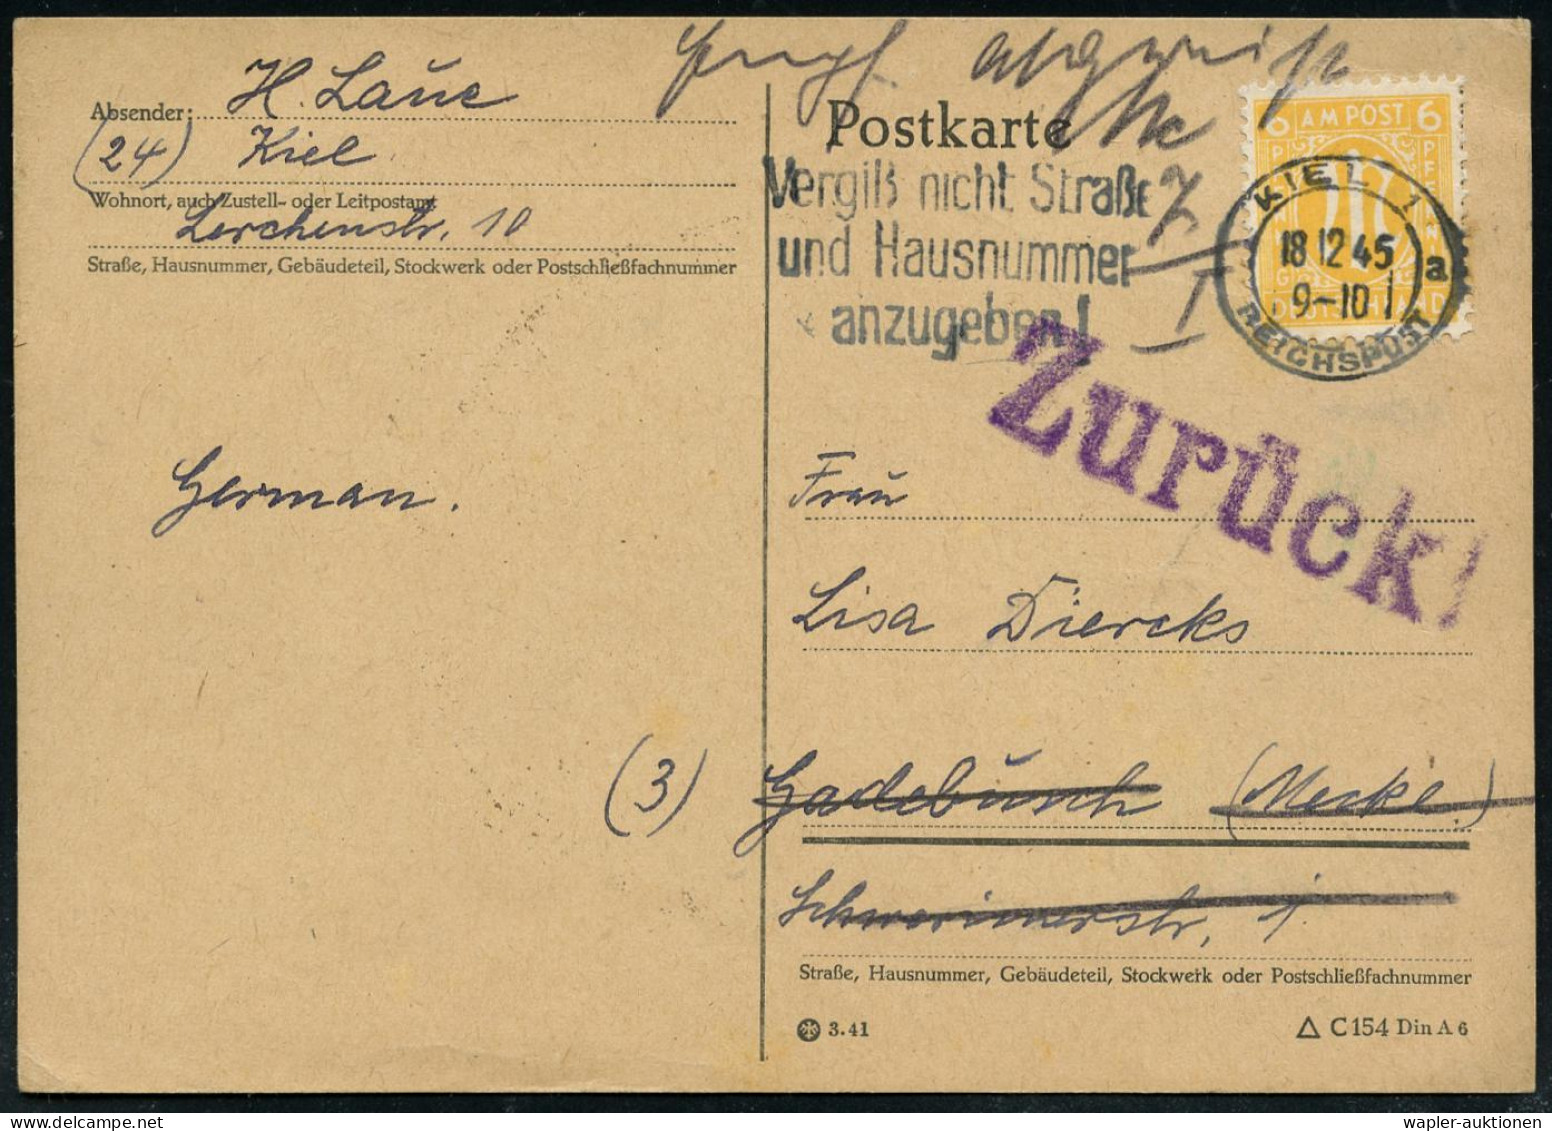 H. Laue
Absender:
(24) Kiel
Wohnort, auch Zustell- oder Leitpostamt
Lerchenstr. 10
Straße, Hausnummer, Gebäudeteil, Stockwerk oder Postschließfachnummer
German.
Postkarte
Vergiß nicht Straße
und Hausnummer
anzugeben!
6 AM POST 6
PFENNIG
DEUTSCHLAND
KIEL 1
18 12 45
9-10
a
REICHSPOST
Zurück!
Frau
Lisa Diercks
(3) Gadebusch (Meckl.)
Schwerinerstr. 1.
Straße, Hausnummer, Gebäudeteil, Stockwerk oder Postschließfachnummer
3.41
C 154 Din A 6
wapler-auktionen